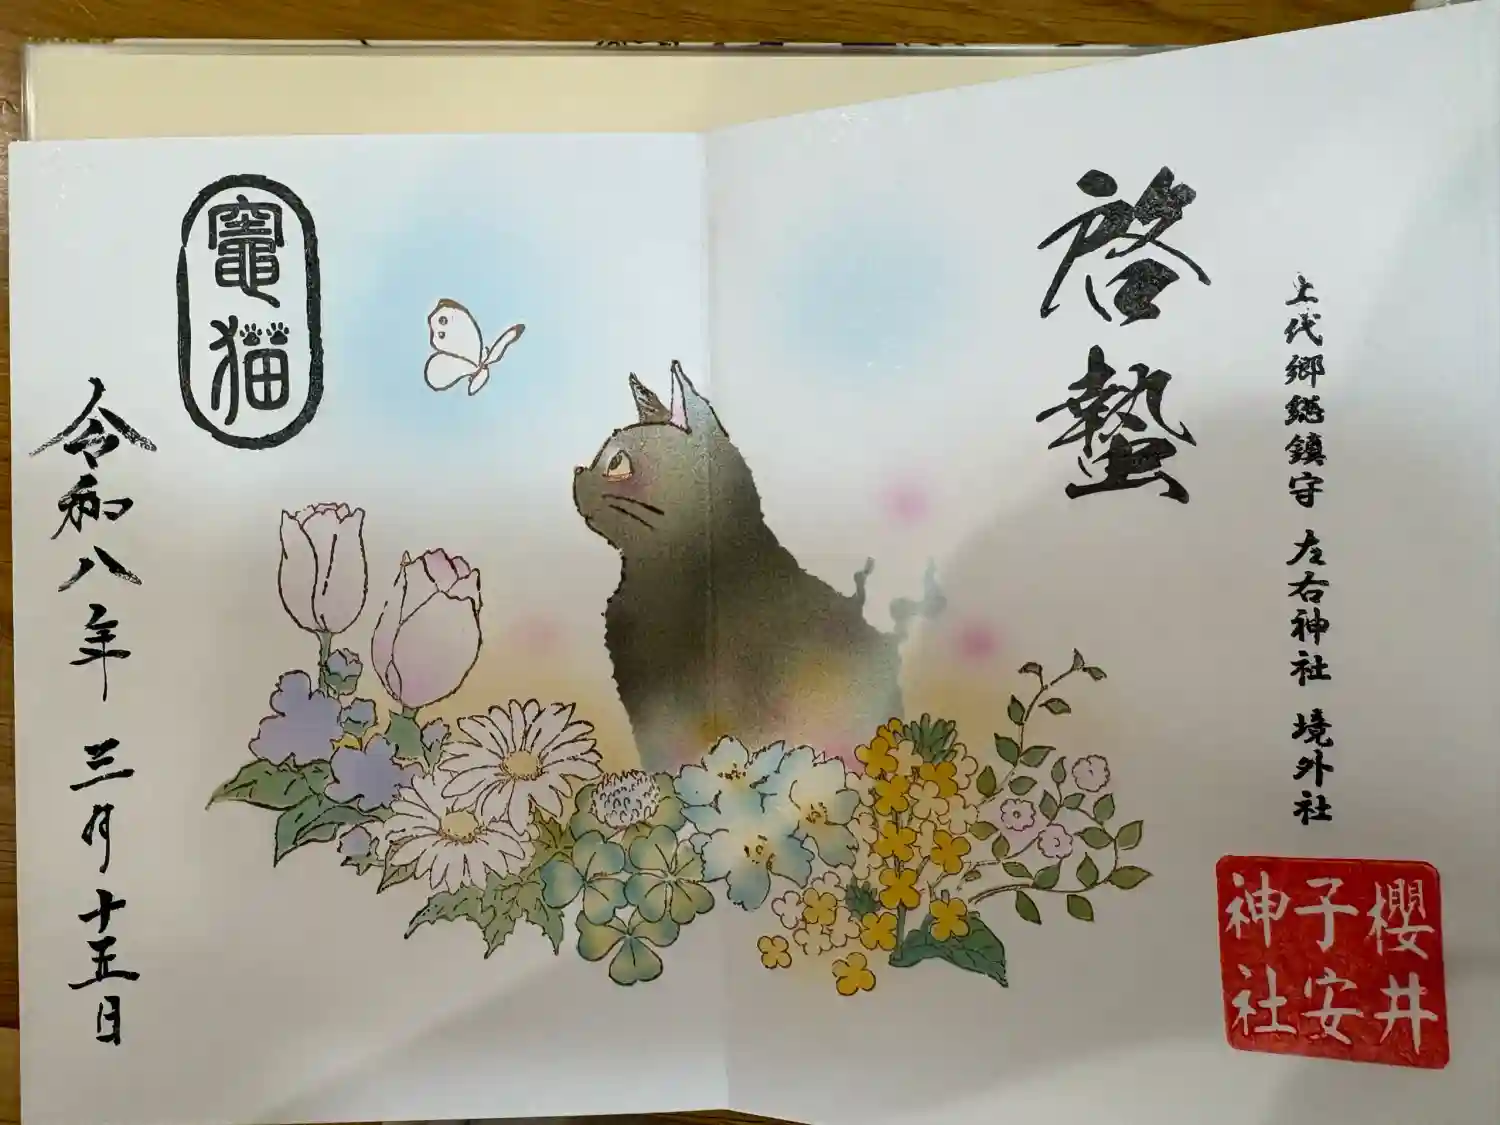 啓蟄
上代郷総鎮守 左右神社 境外社
櫻井
子安
神社
竈猫
令和八年 三月 十五日